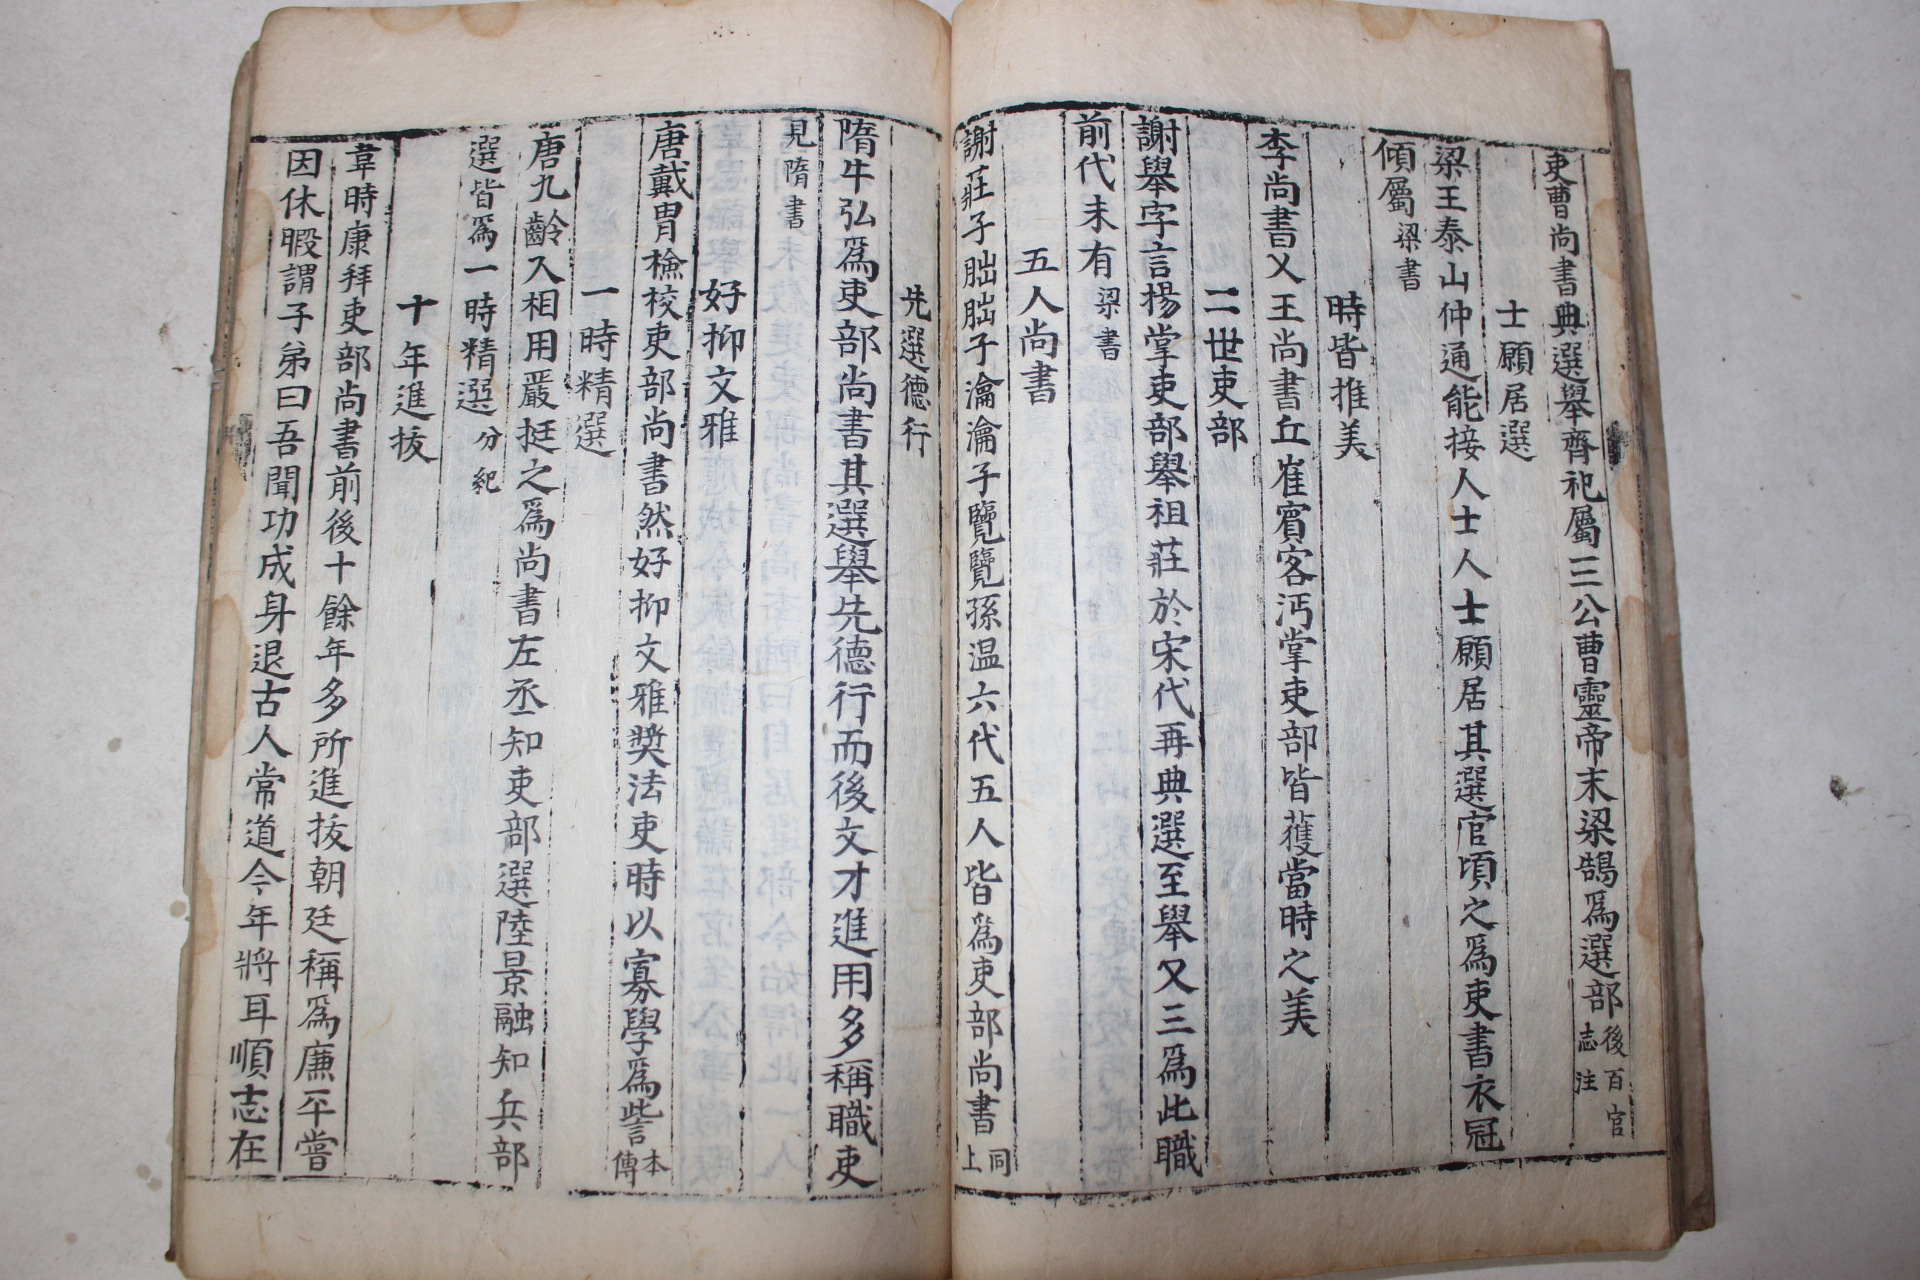 吏曹尚書典選舉齊祀屬三公曹靈帝末梁鵠爲選部後百官志注
士願居選
梁王泰山仲通能接人士人士願居其選官頃之爲吏書衣冠
傾屬梁書
時皆推美
李尚書乂王尚書丘崔賓客沔掌吏部皆獲當時之美
二世吏部
謝舉字言揚掌吏部舉祖莊於宋代再典選至舉又三爲此職
前代未有梁書
五人尚書
謝莊子朏朏子瀹瀹子覽覽孫温六代五人皆爲吏部尚書同上
先選德行
隋牛弘爲吏部尚書其選舉先德行而後文才進用多稱職吏
見隋書
好抑文雅
唐戴胄檢校吏部尚書然好抑文雅奬法吏時以寡學爲訾本傳
一時精選
唐九齡入相用嚴挺之爲尚書左丞知吏部選陸景融知兵部
選皆爲一時精選分紀
十年進拔
韋時康拜吏部尚書前後十餘年多所進拔朝廷稱爲廉平嘗
因休暇謂子弟曰吾聞功成身退古人常道今年將耳順志在